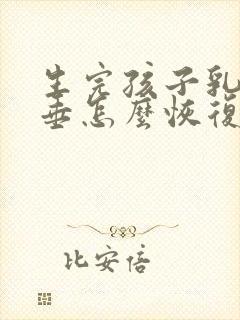 生完孩子乳
垂怎麼恢復
比安倍